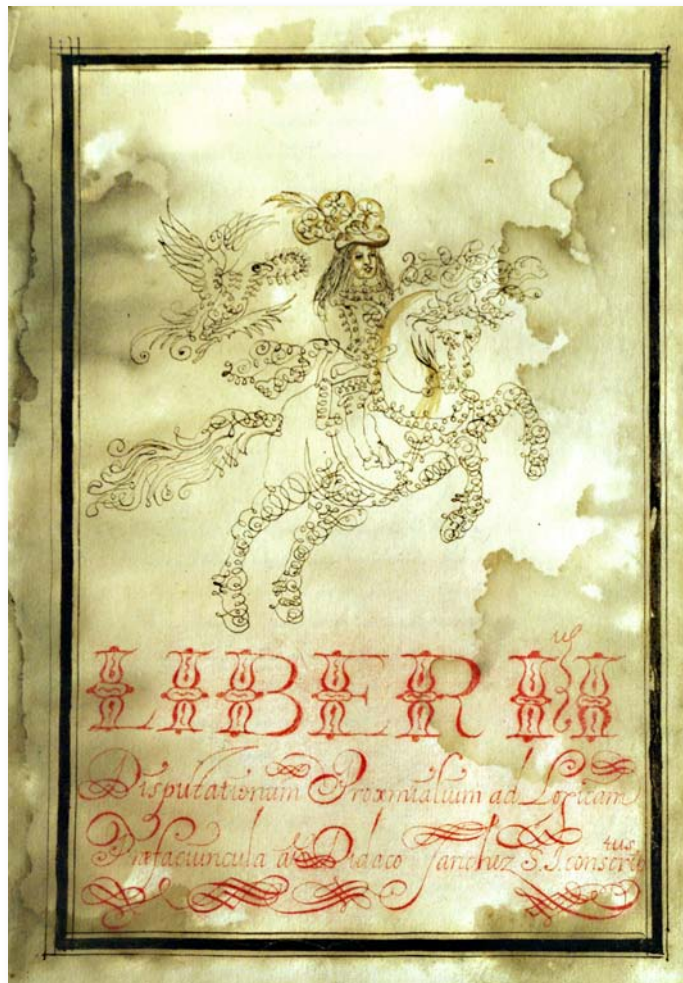 LIBER II us
Disputationum Proemialium ad Logicam
Præfaciuncula a Didaco Sanchez S. J. conscriptus